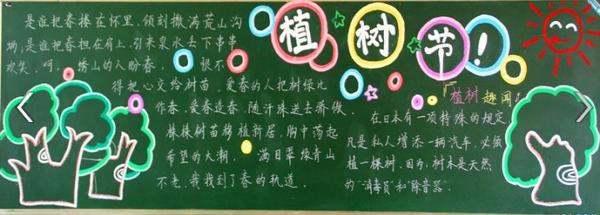 植树节!
是谁把春揍在怀里,倾刻撒满荒山沟
坳;是谁把春担在肩上,引来泉水丢下串串
欢笑。呵,绣山的人盼春,恨不
得把心交给树苗,爱春的人把树绿比
作春。爱春造春,随汗珠送去骄傲。
株株树苗移植新居,胸中荡起
希望的大潮,满目翠绿青山
不老。我找到了春的轨道。
植树趣闻!
在日本有一项特殊的规定
凡是私人增添一辆汽车,必须
植一棵树,因为,树木是天然
的"消毒员"和"除音器"。